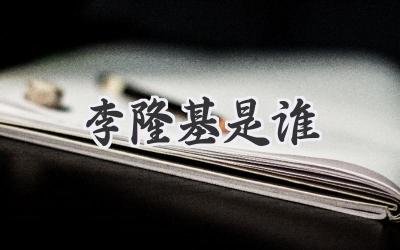 李隆基是谁